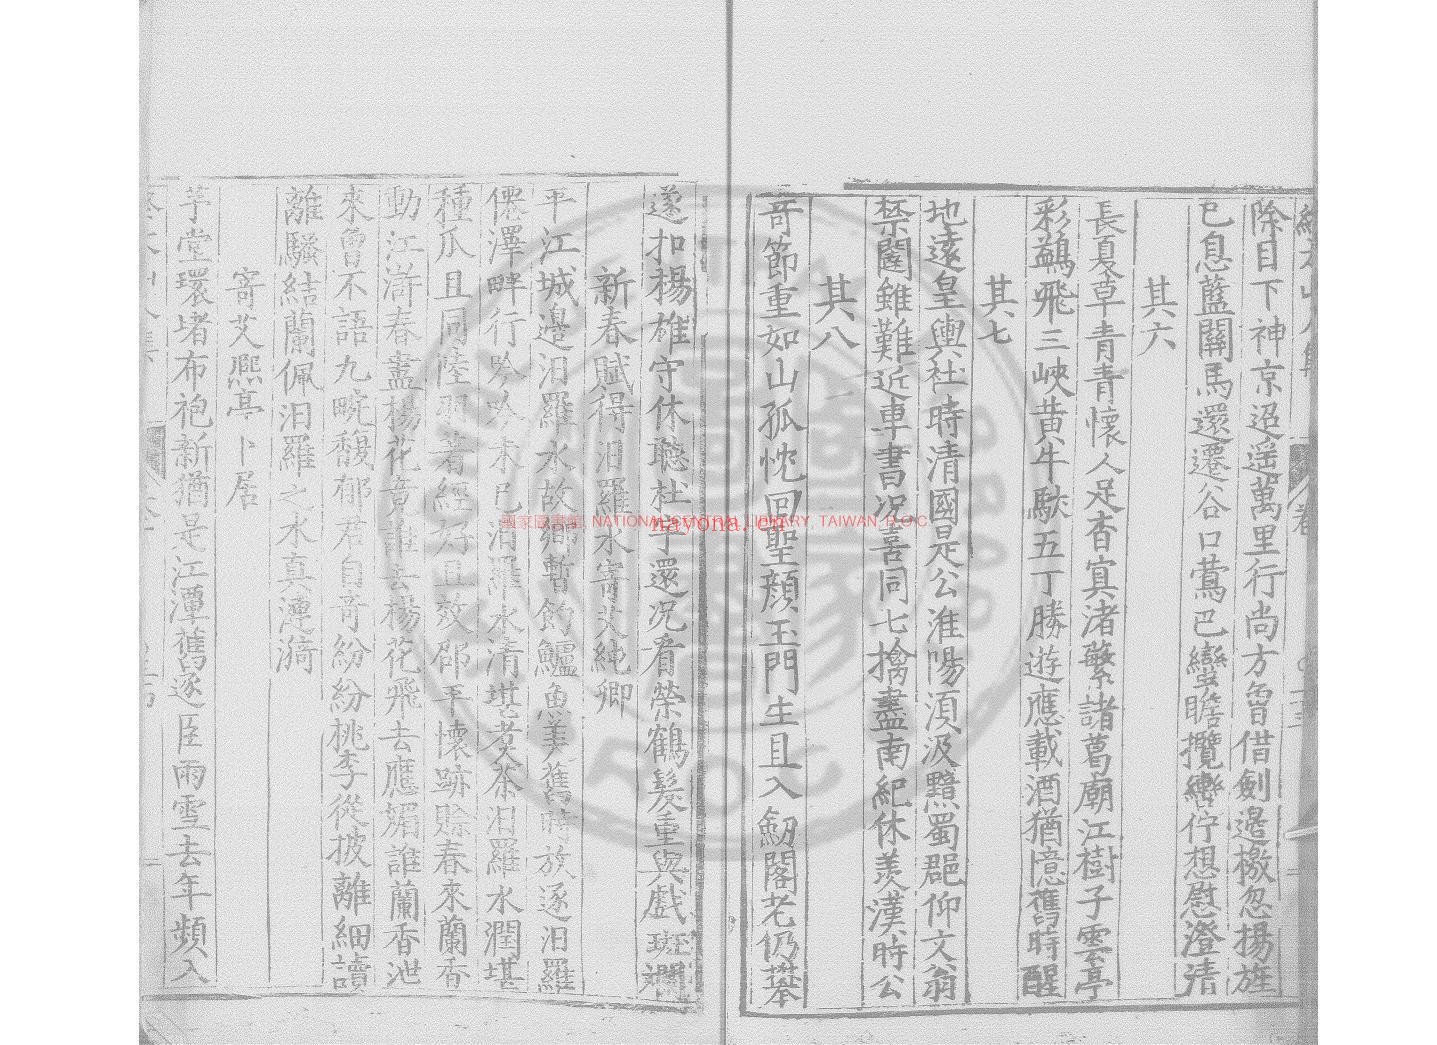 除目下神京迢遥萬里行尚方曾借劍邉檄忽揚旌
已息藍關馬還遷谷口鶯巴蠻瞻攬轡佇想慰澄清
其六
長夏草青青懷人足杳寘渚蘩諸葛廟江樹子雲亭
彩鷁飛三峽黄牛馱五丁勝遊應載酒猶憶舊時醒
其七
地遠皇輿社時清國是公淮陽湏汲黯蜀郡仰文翁
禁闥雖難近車書况喜同七擒盡南紀休羡漢時公
其八
奇節重如山孤忱回聖顔玉門生且入劒閣老仍攀
遂扣楊雄守休聽杜宇還况看榮鶴髮重與戲斑斕
新春賦得汨羅水寄艾純卿
平江城邉汨羅水故鄉暫飽鱸魚美舊時放逐汨羅
僊澤畔行吟吟未已汨羅水清堪煑茶汨羅水潤堪
種瓜且同陸羽著經好且效邵平懷跡賒春來蘭香
動江滸春盡楊花竟誰去楊花飛去應媚誰蘭香池
來曾不語九畹馥郁君自奇紛紛桃李從披離細讀
離騷結蘭佩汨羅之水真漣漪
寄艾熙亭卜居
芋堂環堵布袍新猶是江潭舊逐臣雨雪去年頻入
國家圖書館 NATIONAL CENTRAL LIBRARY, TAIWAN, R.O.C
nayona.cn